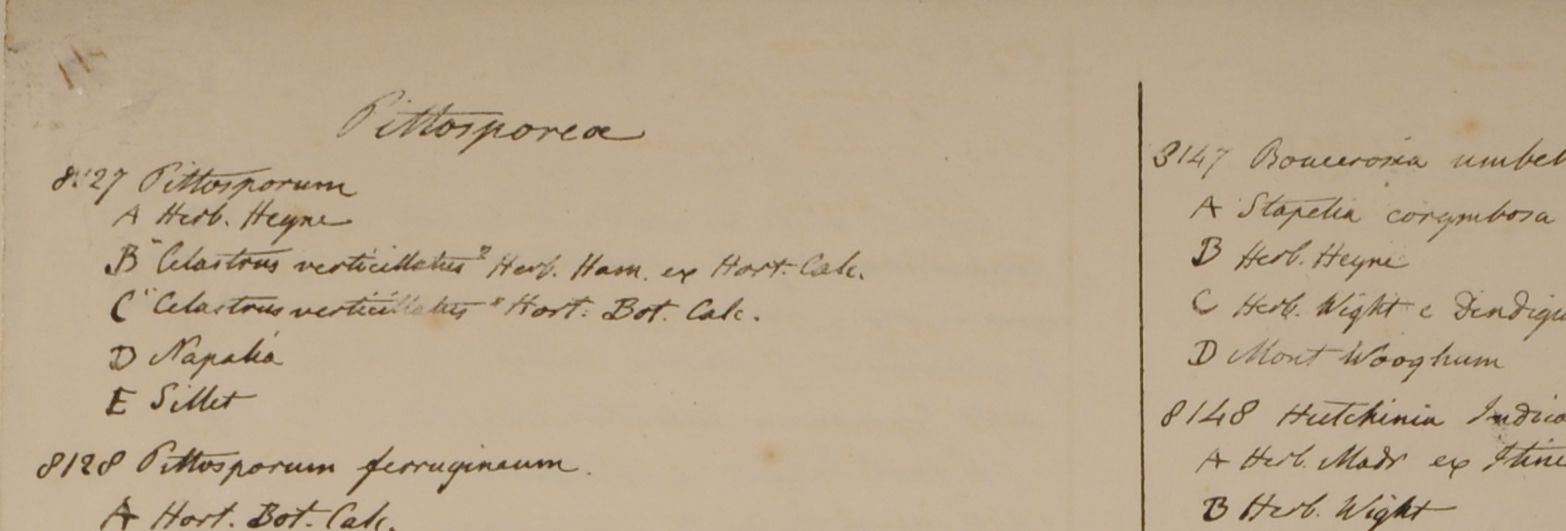 Pittosporeæ
8127 Pittosporum
A Herb. Heyne
B "Celastrus verticillatus" Herb. Ham. ex Hort. Calc.
C "Celastrus verticillatus" Hort. Bot. Calc.
D Napalia
E Sillet
8128 Pittosporum ferruginaum.
A Hort. Bot. Calc.
8147 Boucerosia umbel
A Stapelia corymbosa
B Herb. Heyne
C Herb. Wight e Dindigu
D Mont Wooghum
8148 Hutchinia Indica
A Herb. Madr ex Itine
B Herb. Wight